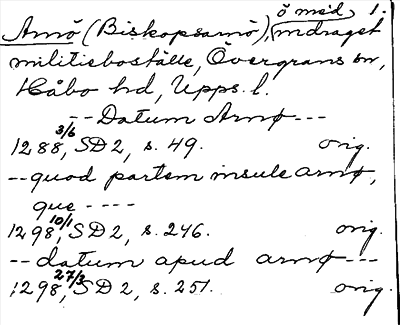 ö med 1.
Arnö (Biskopsarnö), indraget
militieboställe, Övergrans sn,
Håbo hd, Upps. l.
-- Datum Arnø ---
1288 3/6, SD 2, s. 49. orig.
-- quod partem insule arnø,
que ----
1298 10/1, SD 2, s. 246. orig.
-- datum apud arnø ---
1298 27/3, SD 2, s. 251. orig.